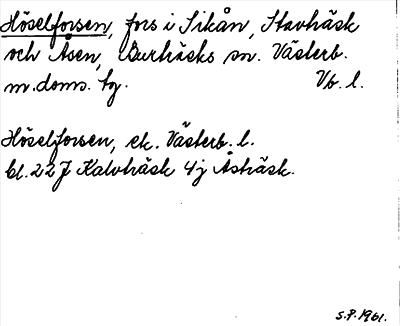 Höselforsen, fors i Sikån, Stavträsk
och Åsen, Burträsks sn. Västerb.
m. doms. tg. Vb. l.
Höselforsen, ek. Västerb. l.
bl. 22 J Kalvträsk 4j Åsträsk.
S.P. 1961.